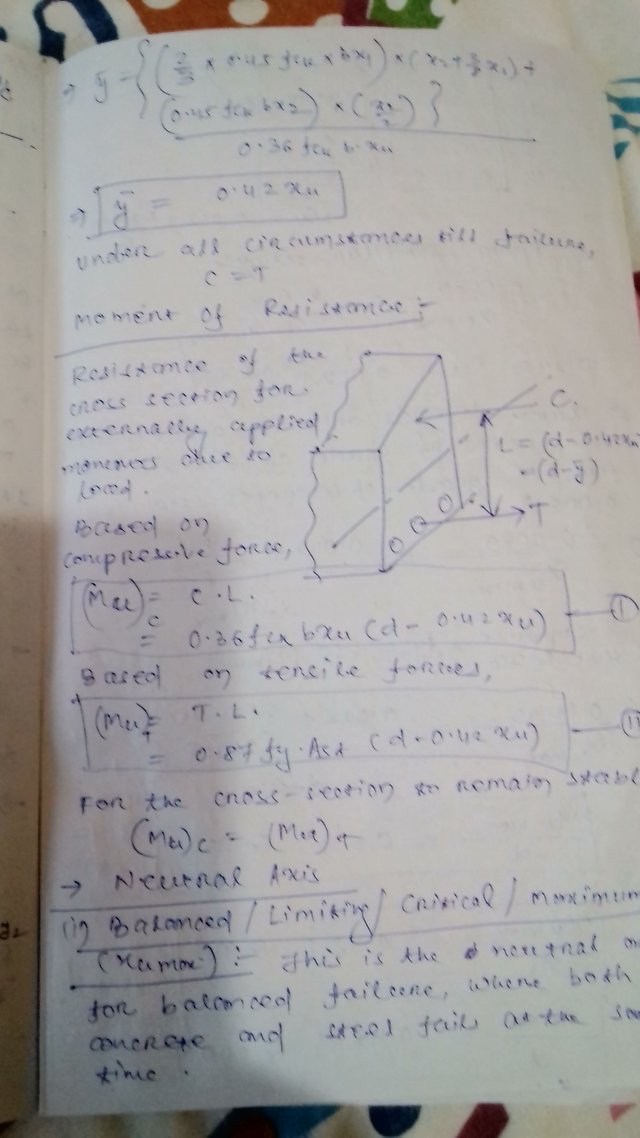 ⇒ ȳ = { (2/3 × 0.45 fck × bx1) × (x2 + 3/8 x1) +
(0.45 fck bx2) × (x2/2) }
0.36 fck b·xu
⇒ ȳ = 0.42 xu
under all circumstances till failure,
C = T
Moment of Resistance :-
Resistance of the
cross section for
externally applied
moments due to
load.
C.
L = (d - 0.42xu
(d - ȳ)
T
Based on
compressive force,
(Mu)c = C·L.
= 0.36 fck bxu (d - 0.42 xu) — (I)
Based on tensile forces,
(Mu)T = T·L.
= 0.87 fy·Ast (d - 0.42 xu) — (II
For the cross-section to remain stabl
(Mu)c = (Mu)T
→ Neutral Axis
(i) Balanced / Limiting / Critical / Maximum
(xumax) :- This is the neutral a
for balanced failure, where both
concrete and steel fails at the sa
time.